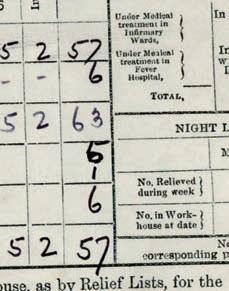 Under Medical
treatment in
Infirmary
Wards,
In
5 2 57
Under Medical
treatment in
Fever
Hospital,
- - 6
TOTAL,
5 2 63
NIGHT L
5
1
No. Relieved
during week
6
No. in Work-
house at date
5 2 57
corresponding p
ouse, as by Relief Lists, for the